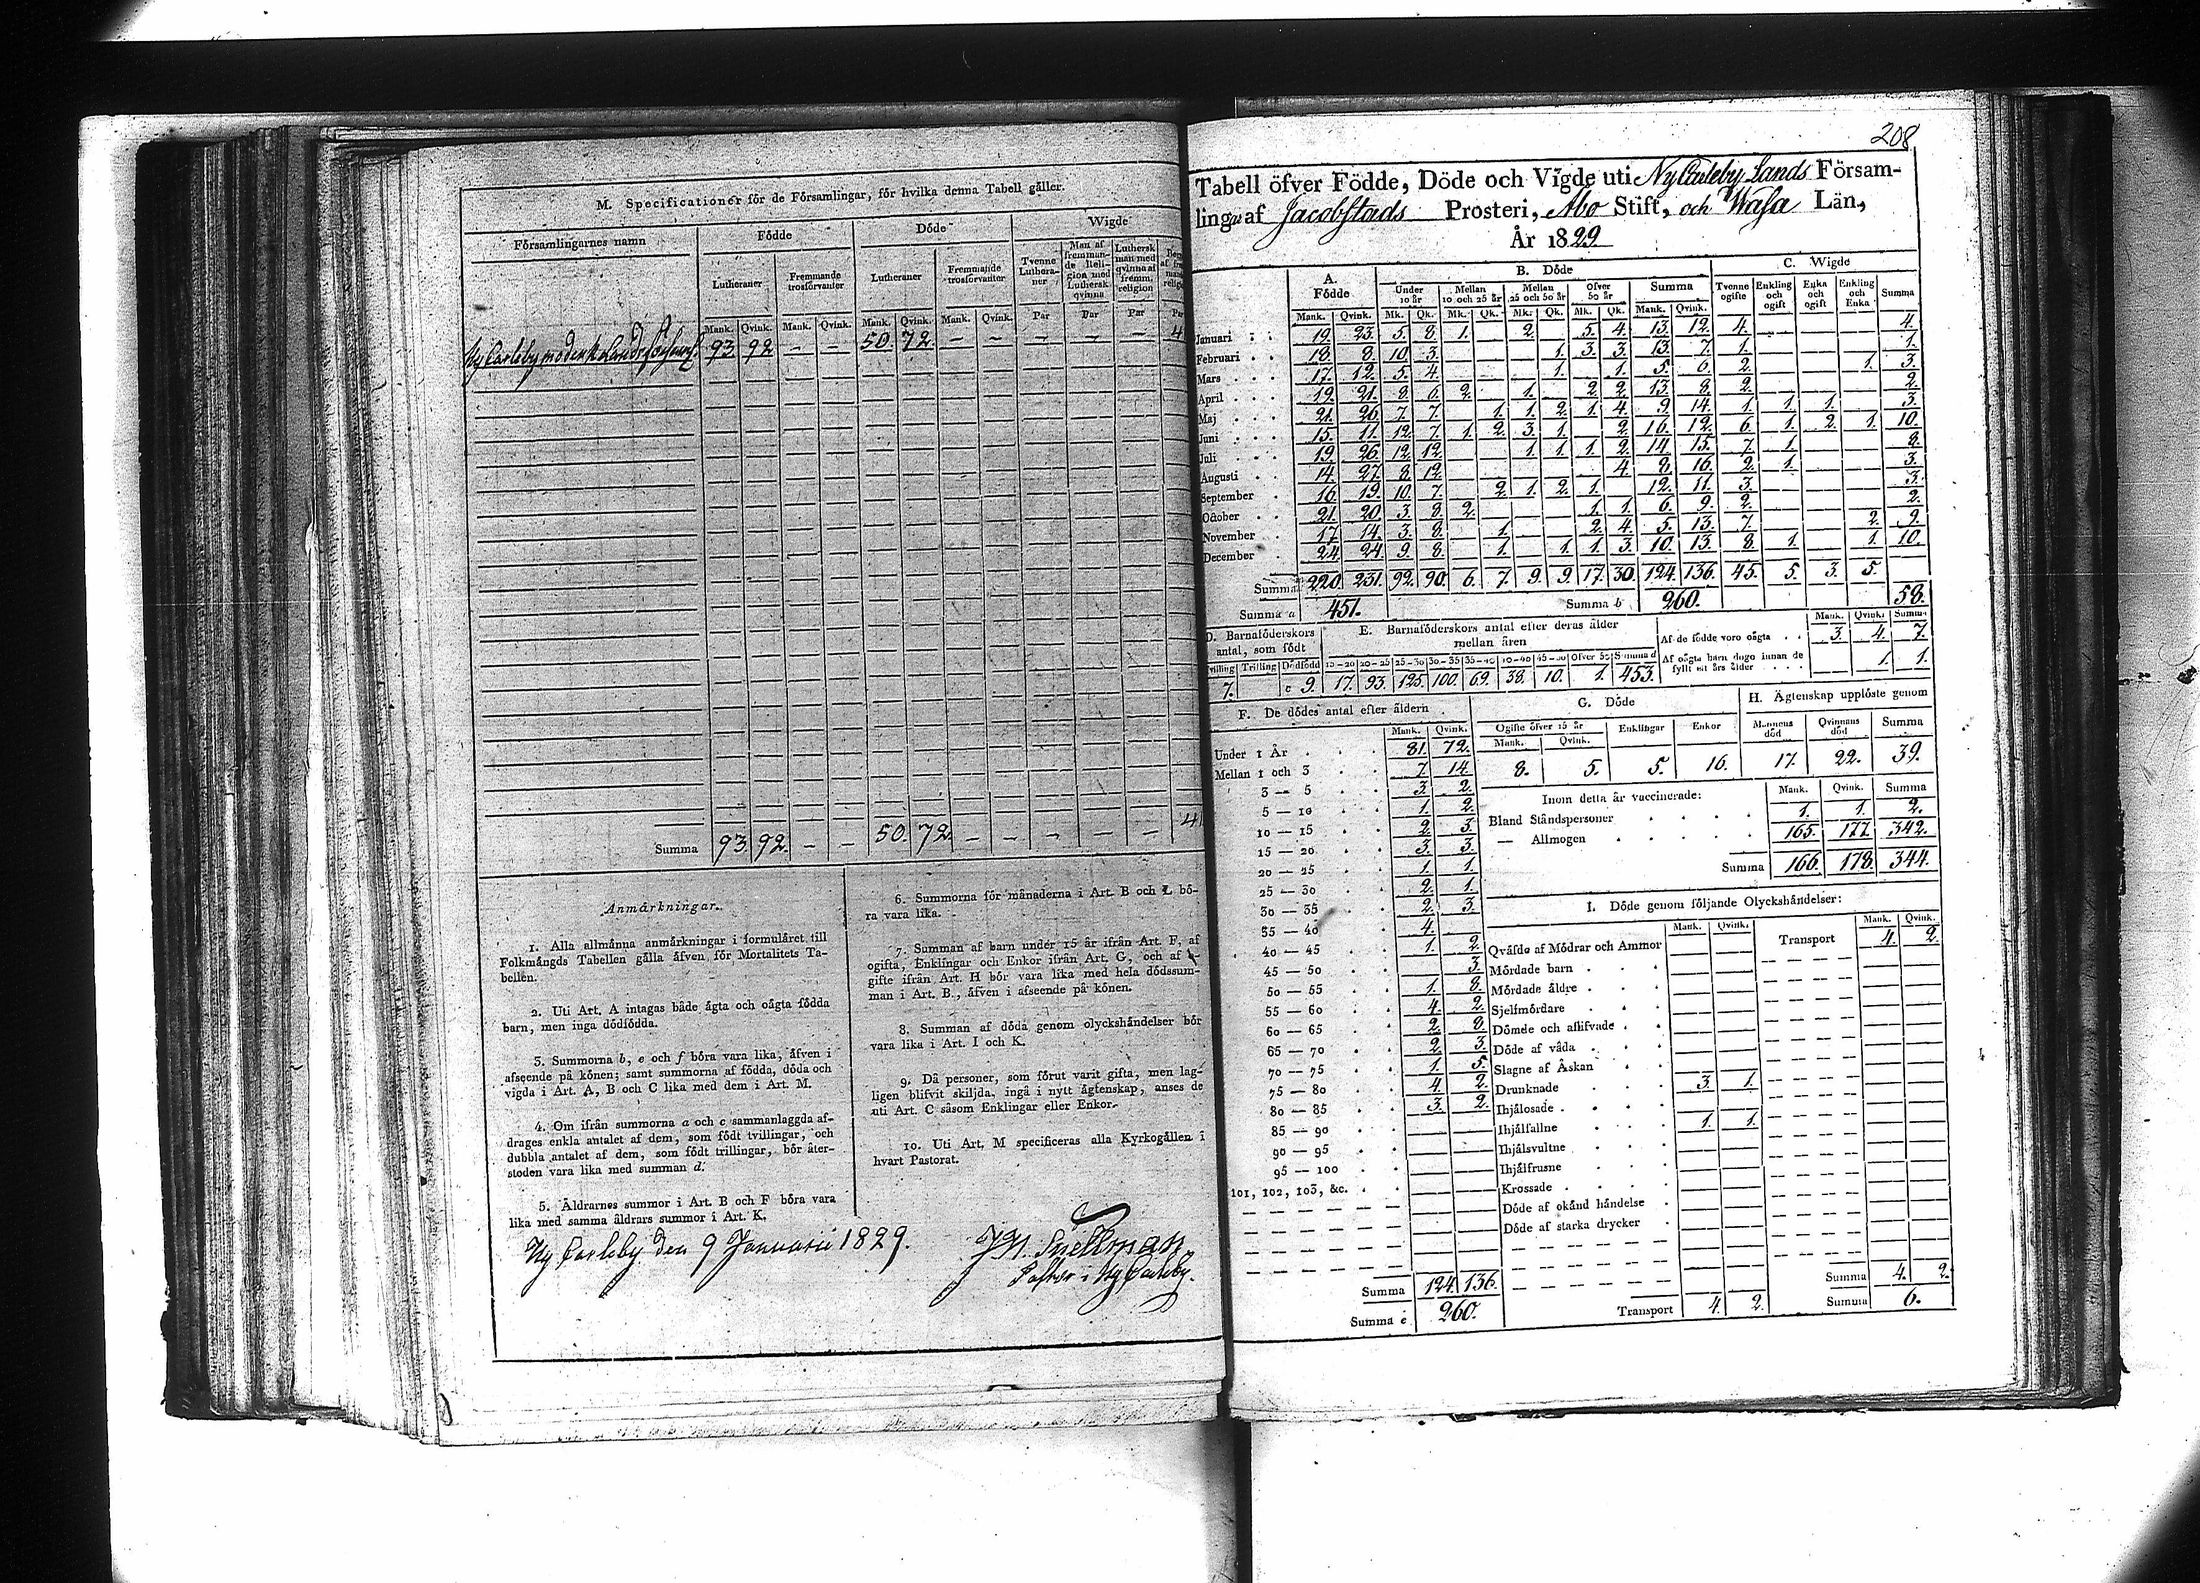 M. Specificationer för de Församlingar, för hvilka denna Tabell gäller.
Församlingarnes namn
Födde
Döde
Wigde
Lutheraner
Fremmande trosförvanter
Lutheraner
Fremmande trosförvanter
Tvenne Lutheraner
Man af fremmande Religion med Luthersk qvinna
Luthersk man med qvinna af fremm. religion
Mank. Qvink. Mank. Qvink. Mank. Qvink. Mank. Qvink. Par Par Par
Ny Carleby moderk. Lands 93 92 — — 50. 72 — — — — — 4
Summa 93 92 — — 50. 72 — — — — — 4
Anmärkningar.
1. Alla allmänna anmärkningar i formuläret till
Folkmängds Tabellen gälla äfven för Mortalitets Ta-
bellen.
2. Uti Art. A intagas både ägta och oägta födda
barn, men inga dödfödda.
3. Summorna b, e och f böra vara lika, äfven i
afseende på könen; samt summorna af födda, döda och
vigda i Art. A, B och C lika med dem i Art. M.
4. Om ifrån summorna a och c sammanlaggda af-
drages enkla antalet af dem, som födt tvillingar, och
dubbla antalet af dem, som födt trillingar, bör åter-
stoden vara lika med summan d.
5. Äldrarnes summor i Art. B och F böra vara
lika med samma äldrars summor i Art. K.
6. Summorna för månaderna i Art. B och L bö-
ra vara lika.
7. Summan af barn under 15 år ifrån Art. F, af
ogifta, Enklingar och Enkor ifrån Art. G, och af
gifte ifrån Art. H bör vara lika med hela dödssum-
man i Art. B., äfven i afseende på könen.
8. Summan af döda genom olyckshändelser bör
vara lika i Art. I och K.
9. Då personer, som förut varit gifta, men lag-
ligen blifvit skiljda, ingå i nytt ägtenskap, anses de
uti Art. C såsom Enklingar eller Enkor.
10. Uti Art. M specificeras alla Kyrkogällen i
hvart Pastorat.
Ny Carleby den 9 Januarii 1829.
Snellman
Pastor i Ny Carleby.
208
Tabell öfver Födde, Döde och Vigde uti Ny Carleby Lands Försam-
ling af Jacobstads Prosteri, Åbo Stift, och Wasa Län,
År 1829
A. Födde
B. Döde
C. Wigde
Under 10 år
Mellan 10 och 25 år
Mellan 25 och 50 år
Öfver 50 år
Summa
Tvenne ogifte
Enkling och ogift
Enka och ogift
Enkling och Enka
Summa
Mank. Qvink. Mk. Qk. Mk. Qk. Mk. Qk. Mk. Qk. Mank. Qvink.
Januari 19. 23. 5. 8. 1. 2. 5. 4. 13. 12. 4. 4.
Februari 18. 8. 10. 3. 1. 3. 3. 13. 7. 1. 1.
Mars 17. 12. 5. 4. 1. 1. 5. 6. 2. 1. 3.
April 19. 21. 8. 6. 2. 1. 2. 2. 13. 8. 2. 2.
Maj 21. 26. 7. 7. 1. 1. 2. 1. 4. 9. 14. 1. 1. 1. 3.
Juni 15. 11. 12. 7. 1. 2. 3. 1. 2. 16. 12. 6. 1. 2. 1. 10.
Juli 19. 26. 12. 12. 1. 1. 1. 2. 14. 15. 7. 1. 8.
Augusti 14. 27. 8. 12. 4. 8. 16. 2. 1. 3.
September 16. 19. 10. 7. 2. 1. 2. 1. 12. 11. 3. 3.
October 21. 20. 3. 8. 2. 1. 1. 6. 9. 2. 2.
November 17. 14. 3. 8. 1. 2. 4. 5. 13. 7. 2. 9.
December 24. 24. 9. 8. 1. 1. 1. 3. 10. 13. 8. 1. 1. 10.
Summa 220. 231. 92. 90. 6. 7. 9. 9. 17. 30. 124. 136. 45. 5. 3. 5.
Summa a 451. Summa b 260. 58.
D. Barnaföderskors antal, som födt
Tvilling Trilling Dödfödd
7. c 9.
E. Barnaföderskors antal efter deras ålder mellan åren
15-20 20-25 25-30 30-35 35-40 40-45 45-50 Öfver 50 Summa d
17. 93. 125. 100. 69. 38. 10. 1. 453.
Mank. Qvink. Summa
Af de födde voro oägta 3. 4. 7.
Af oägta barn dogo innan de fyllt ett års ålder 1. 1.
F. De dödes antal efter åldern
Mank. Qvink.
Under 1 År 81. 72.
Mellan 1 och 3 7. 14.
3 — 5 3. 2.
5 — 10 1. 2.
10 — 15 2. 3.
15 — 20 3. 3.
20 — 25 1. 1.
25 — 30 2. 1.
30 — 35 2. 3.
35 — 40 4.
40 — 45 1. 2.
45 — 50 3.
50 — 55 1. 8.
55 — 60 4. 2.
60 — 65 2. 8.
65 — 70 2. 3.
70 — 75 1. 5.
75 — 80 4. 2.
80 — 85 3. 2.
85 — 90
90 — 95
95 — 100
101, 102, 103, &c.
Summa 124. 136.
Summa e 260.
G. Döde
Ogifte öfver 15 år Enklingar Enkor
Mank. Qvink.
8. 5. 5. 16.
H. Ägtenskap upplöste genom
Mannens död Qvinnans död Summa
17. 22. 39.
Inom detta år vaccinerade: Mank. Qvink. Summa
Bland Ståndspersoner 1. 1. 2.
— Allmogen 165. 177. 342.
Summa 166. 178. 344.
I. Döde genom följande Olyckshändelser:
Mank. Qvink. Mank. Qvink.
Qväfde af Mödrar och Ammor Transport 4. 2.
Mördade barn
Mördade äldre
Sjelfmördare
Dömde och aflifvade
Döde af våda
Slagne af Åskan
Drunknade 3. 1.
Ihjälosade
Ihjälfallne 1. 1.
Ihjälsvultne
Ihjälfrusne
Krossade
Döde af okänd händelse
Döde af starka drycker
Summa 4. 2.
Transport 4. 2. Summa 6.